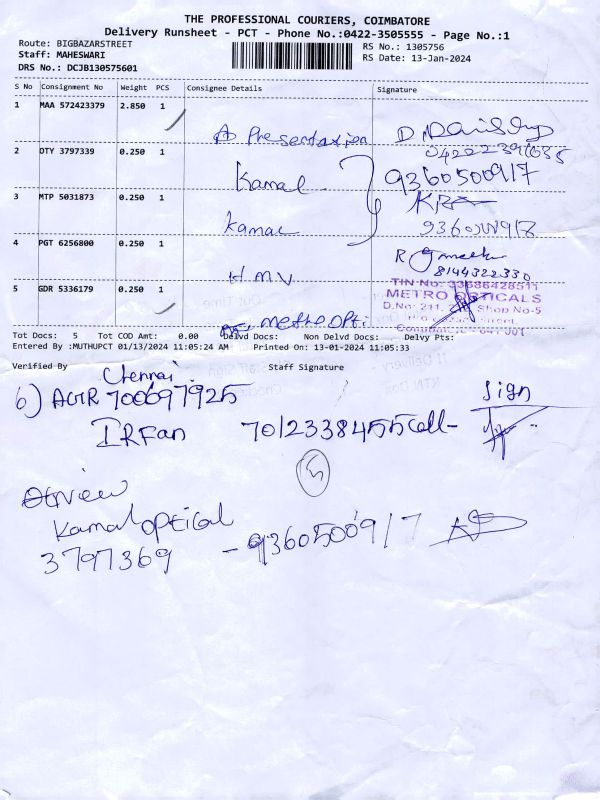 THE PROFESSIONAL COURIERS, COIMBATORE
Delivery Runsheet - PCT - Phone No.:0422-3505555 - Page No.:1
Route: BIGBAZARSTREET
RS No.: 1305756
Staff: MAHESWARI
RS Date: 13-Jan-2024
DRS No.: DCJB130575601
S No Consignment No Weight PCS Consignee Details Signature
1 MAA 572423379 2.850 1
Presentation
2 DTY 3797339 0.250 1
Kamal 9360500917
3 MTP 5031873 0.250 1
Kamal
4 PGT 6256800 0.250 1
H.M.V 8144322330
TIN No: 33686428511
5 GDR 5336179 0.250 1
METRO OPTICALS
D.No: 211, Shop No-5
Tot Docs: 5 Tot COD Amt: 0.00 Delvd Docs: Non Delvd Docs: Delvy Pts:
Entered By :MUTHUPCT 01/13/2024 11:05:24 AM Printed On: 13-01-2024 11:05:33
Verified By Staff Signature
Chennai
6) 700697925 Sign
IRFan 7012338455 Cell-
15
Kamal optical
3797369 - 9360500917